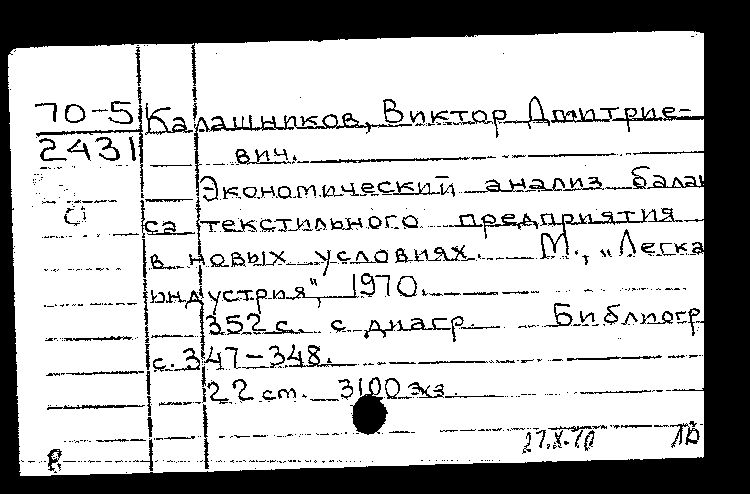 70-5 Калашников, Виктор Дмитрие-
2431 вич.
Экономический анализ балан
са текстильного предприятия
в новых условиях. М., „Легка
индустрия", 1970.
352 с. с диагр. Библиогр
с. 347-348.
22 см. 3100 экз.
27.X.70
В